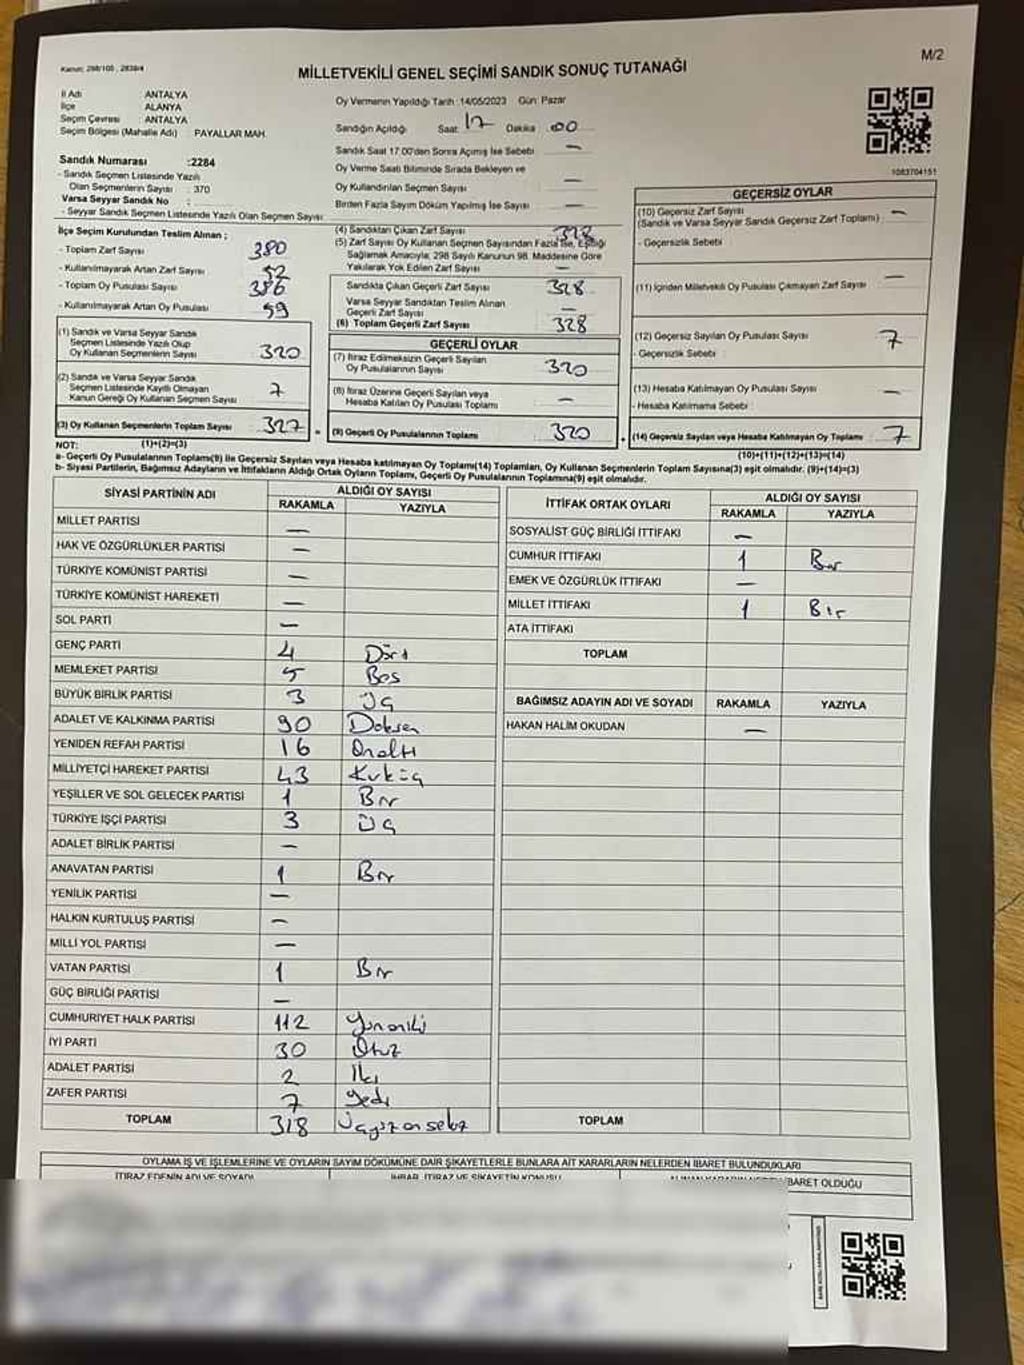 M/2
Kanun: 298/105 , 2839/4
MİLLETVEKİLİ GENEL SEÇİMİ SANDIK SONUÇ TUTANAĞI
İl Adı : ANTALYA
İlçe : ALANYA
Seçim Çevresi : ANTALYA
Seçim Bölgesi (Mahalle Adı) : PAYALLAR MAH.
Sandık Numarası :2284
- Sandık Seçmen Listesinde Yazılı
Olan Seçmenlerin Sayısı : 370
Varsa Seyyar Sandık No :
- Seyyar Sandık Seçmen Listesinde Yazılı Olan Seçmen Sayısı
Oy Vermenin Yapıldığı Tarih :14/05/2023 Gün: Pazar
Sandığın Açıldığı Saat: 17 Dakika : 00
Sandık Saat 17:00'den Sonra Açılmış İse Sebebi —
Oy Verme Saati Bitiminde Sırada Bekleyen ve
Oy Kullandırılan Seçmen Sayısı —
Birden Fazla Sayım Döküm Yapılmış İse Sayısı —
1083704151
İlçe Seçim Kurulundan Teslim Alınan ;
- Toplam Zarf Sayısı 380
- Kullanılmayarak Artan Zarf Sayısı 52
- Toplam Oy Pusulası Sayısı 386
- Kullanılmayarak Artan Oy Pusulası 59
(1) Sandık ve Varsa Seyyar Sandık
Seçmen Listesinde Yazılı Olup
Oy Kullanan Seçmenlerin Sayısı 320
(2) Sandık ve Varsa Seyyar Sandık
Seçmen Listesinde Kayıtlı Olmayan
Kanun Gereği Oy Kullanan Seçmen Sayısı 7
(3) Oy Kullanan Seçmenlerin Toplam Sayısı 327 =
(4) Sandıktan Çıkan Zarf Sayısı 328
(5) Zarf Sayısı Oy Kullanan Seçmen Sayısından Fazla İse, Eşitliği
Sağlamak Amacıyla; 298 Sayılı Kanunun 98. Maddesine Göre
Yakılarak Yok Edilen Zarf Sayısı —
Sandıkta Çıkan Geçerli Zarf Sayısı 328
Varsa Seyyar Sandıktan Teslim Alınan
Geçerli Zarf Sayısı —
(6) Toplam Geçerli Zarf Sayısı 328
GEÇERLİ OYLAR
(7) İtiraz Edilmeksizin Geçerli Sayılan
Oy Pusulalarının Sayısı 320
(8) İtiraz Üzerine Geçerli Sayılan veya
Hesaba Katılan Oy Pusulası Toplamı —
(9) Geçerli Oy Pusulalarının Toplamı 320 +
GEÇERSİZ OYLAR
(10) Geçersiz Zarf Sayısı —
(Sandık ve Varsa Seyyar Sandık Geçersiz Zarf Toplamı) :
- Geçersizlik Sebebi :
(11) İçinden Milletvekili Oy Pusulası Çıkmayan Zarf Sayısı —
(12) Geçersiz Sayılan Oy Pusulası Sayısı : 7
- Geçersizlik Sebebi :
(13) Hesaba Katılmayan Oy Pusulası Sayısı : —
- Hesaba Katılmama Sebebi :
(14) Geçersiz Sayılan veya Hesaba Katılmayan Oy Toplamı 7
NOT: (1)+(2)=(3) (10)+(11)+(12)+(13)=(14)
a- Geçerli Oy Pusulalarının Toplamı(9) ile Geçersiz Sayılan veya Hesaba katılmayan Oy Toplamı(14) Toplamları, Oy Kullanan Seçmenlerin Toplam Sayısına(3) eşit olmalıdır. (9)+(14)=(3)
b- Siyasi Partilerin, Bağımsız Adayların ve İttifakların Aldığı Ortak Oyların Toplamı, Geçerli Oy Pusulalarının Toplamına(9) eşit olmalıdır.
SİYASİ PARTİNİN ADI ALDIĞI OY SAYISI
RAKAMLA YAZIYLA
MİLLET PARTİSİ —
HAK VE ÖZGÜRLÜKLER PARTİSİ —
TÜRKİYE KOMÜNİST PARTİSİ —
TÜRKİYE KOMÜNİST HAREKETİ —
SOL PARTİ —
GENÇ PARTİ 4 Dört
MEMLEKET PARTİSİ 5 Beş
BÜYÜK BİRLİK PARTİSİ 3 Üç
ADALET VE KALKINMA PARTİSİ 90 Doksan
YENİDEN REFAH PARTİSİ 16 Onaltı
MİLLİYETÇİ HAREKET PARTİSİ 43 Kırküç
YEŞİLLER VE SOL GELECEK PARTİSİ 1 Bir
TÜRKİYE İŞÇİ PARTİSİ 3 Üç
ADALET BİRLİK PARTİSİ —
ANAVATAN PARTİSİ 1 Bir
YENİLİK PARTİSİ —
HALKIN KURTULUŞ PARTİSİ —
MİLLİ YOL PARTİSİ —
VATAN PARTİSİ 1 Bir
GÜÇ BİRLİĞİ PARTİSİ —
CUMHURİYET HALK PARTİSİ 112 Yüzoniki
İYİ PARTİ 30 Otuz
ADALET PARTİSİ 2 İki
ZAFER PARTİSİ 7 Yedi
TOPLAM 318 Üçyüzonsekiz
İTTİFAK ORTAK OYLARI ALDIĞI OY SAYISI
RAKAMLA YAZIYLA
SOSYALİST GÜÇ BİRLİĞİ İTTİFAKI —
CUMHUR İTTİFAKI 1 Bir
EMEK VE ÖZGÜRLÜK İTTİFAKI —
MİLLET İTTİFAKI 1 Bir
ATA İTTİFAKI
TOPLAM
BAĞIMSIZ ADAYIN ADI VE SOYADI RAKAMLA YAZIYLA
HAKAN HALİM OKUDAN —
TOPLAM
OYLAMA İŞ VE İŞLEMLERİNE VE OYLARIN SAYIM DÖKÜMÜNE DAİR ŞİKAYETLERLE BUNLARA AİT KARARLARIN NELERDEN İBARET BULUNDUKLARI
İTİRAZ EDENİN ADI VE SOYADI İHBAR, İTİRAZ VE ŞİKAYETİN KONUSU İBARET OLDUĞU